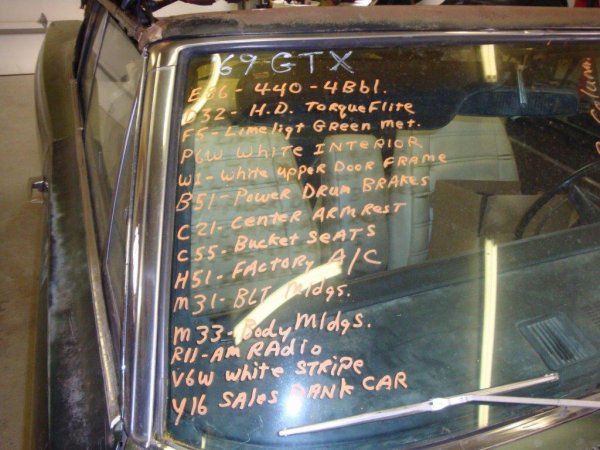 '69 GTX
E86 - 440 - 4Bbl.
D32 - H.D. TorqueFlite
F5 - Limeligt Green met.
P6W White INTERIOR
W1 - White upper Door FRAME
B51 - Power Drum BRAKES
C21 - CENTER ARM REST
C55 - Bucket SEATS
H51 - FACTORY A/C
M31 - BLT Mldgs.
M33 - Body Mldgs.
R11 - AM RAdio
V6W white STRIPE
Y16 SAles BANK CAR
Column